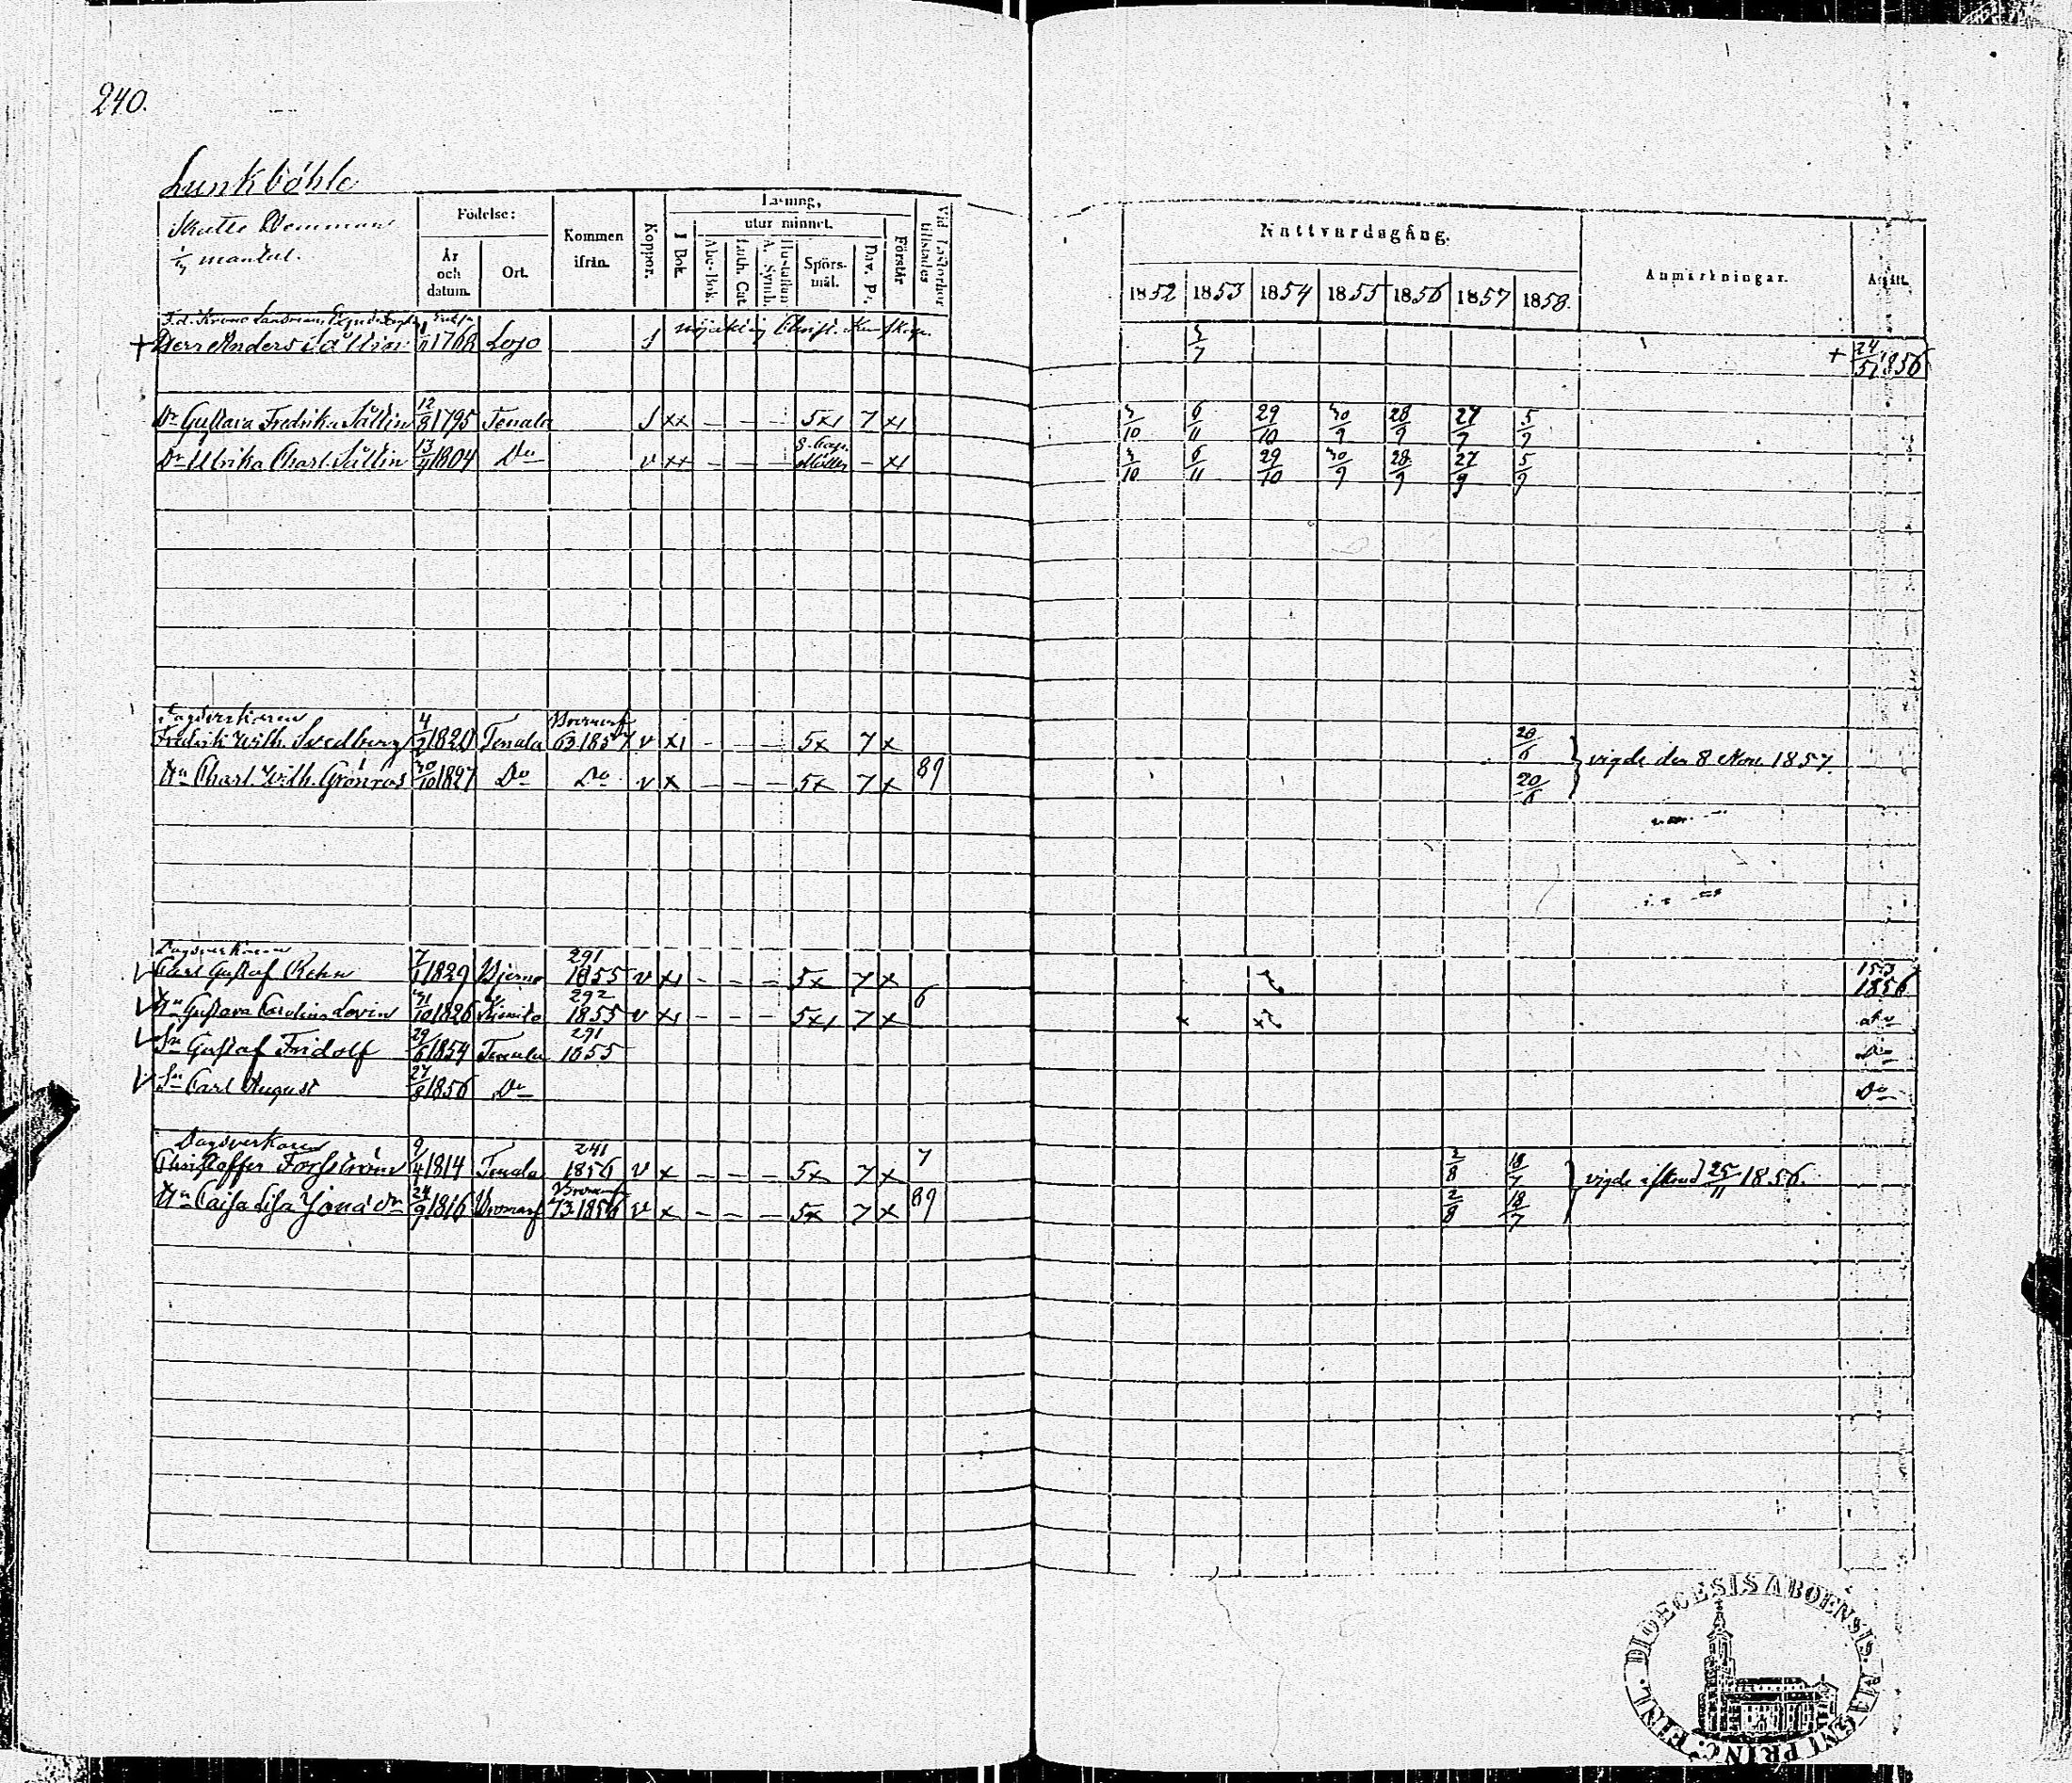 240.
Lunkböhle
Skatte Hemman
mantal.
Födelse:
År och datum.
Ort.
Kommen ifrån.
Koppor.
Läsning,
I Bok.
utur minnet.
Abc-Bok.
Luth. Cat.
A. Symb.
Hustaflan
Spörsmål.
Dav. Ps.
Förstår
Vid Läsförhör tillstädes
Nattvardsgång.
1852 1853 1854 1855 1856 1857 1858.
Anmärkningar.
Afgått.
F.d. Krono Länsman Enkl.
+ Herr Anders Sållin 1768 Lojo s nöjaktig Christ. Kunskap. 7 + 24/5 1856
Dr Gustava Fredrika Sållin 12/8 1795 Tenala s xx – – – 5x1 7 x1 3/10 6/11 29/10 30/9 28/9 27/9 5/9
Dr Ulrika Charl. Sållin 13/9 1804 Do v xx – – – – x1 3/10 6/11 29/10 30/9 28/9 27/9 5/9
Dagsverkaren Bromarf
Fredrik Wilh. Svedberg 4/2 1820 Tenala 63.1857 v x1 – – – 5x 7 x 20/6 vigde den 8 Nov. 1857.
Hu Charl. Wilh. Grönroos 30/10 1827 Do Do v x – – – 5x 7 x 89 20/6
Dagsverkaren 291
Carl Gustaf Rehn 7/1 1829 Bjerno 1855 v x1 – – – 5x 7 x 153 1856
292
Hu Gustava Carolina Lovin 31/10 1826 Kimito 1855 v x1 – – – 5x1 7 x 6 x x do
291
Sn Gustaf Fridolf 29/6 1854 Tenala 1855 Do
Sn Carl August 27/8 1856 Do Do
Dagsverkaren 241
Christoffer Forsström 9/4 1814 Tenala 1856 v x – – – 5x 7 x 7 2/8 18/7 vigde 25/11 1856.
Bromarf
Hu Caisa Lisa Jonasdr 24/9 1816 Bromarf 73.1856 v x – – – 5x 7 x 89 2/8 18/7
DIOECESIS ABOENSIS. M. AGNI PRINC: FINL.